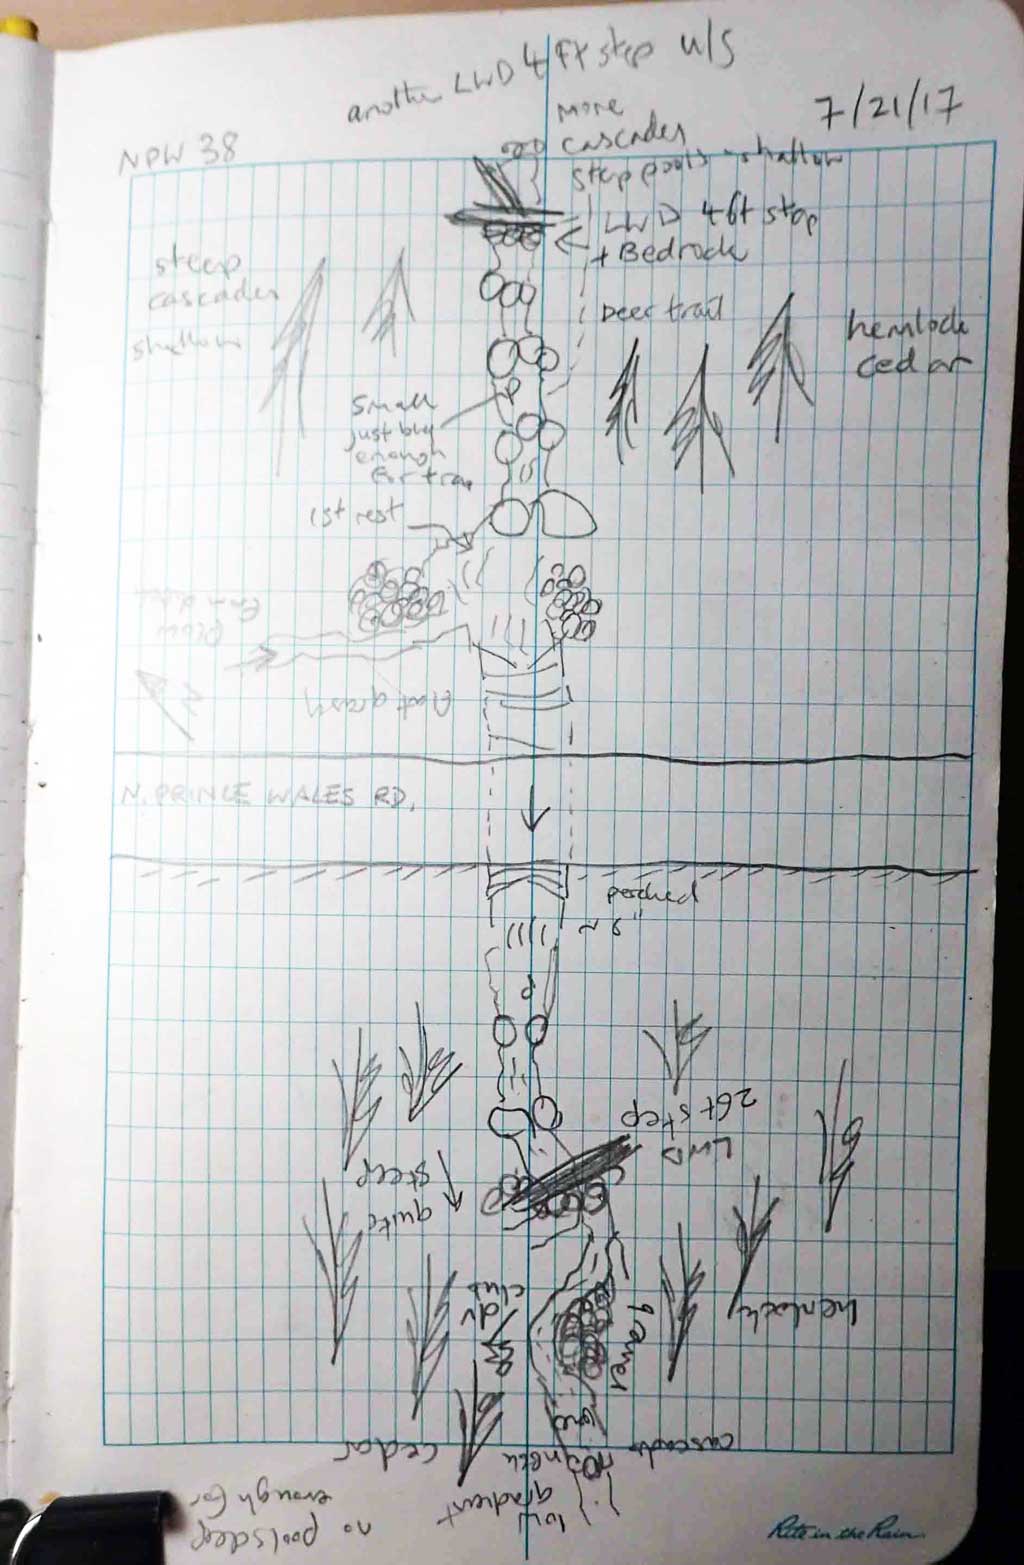 another LWD 4 Ft step u/s
7/21/17
NPW 38
More
cascades
step pools - shallow
LWD 4ft step
+ Bedrock
steep
cascades
shallow
Deer trail
hemlock
cedar
P
small
just big
enough
for trap
1st rest
Flow
flat grassy
N
N. PRINCE WALES RD.
perched
~ 9"
P
2ft step
LWD
quite
steep
dv
club
gravel
hemlock
cedar
cascade
low
gradient
no pools deep
enough for
Rite in the Rain